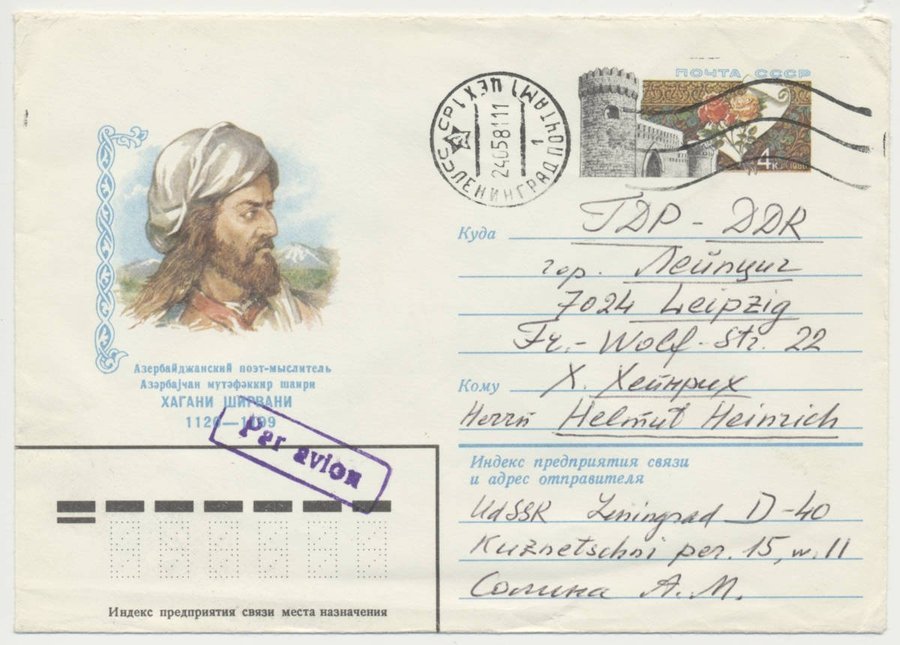 ПОЧТА СССР
4 к 1980
СССР ЛЕНИНГРАД ПОЧТАМТ 1 (ЦЕХ 1)
24.05.81.11
Азербайджанский поэт-мыслитель
Азәрбајҹан мүтәфәккир шаири
ХАГАНИ ШИРВАНИ
1120—1199
Par avion
Куда ГДР - DDR
гор. Лейпциг
7024 Leipzig
Fr.- Wolf-Str. 22
Кому Х. Хейнрих
Herrn Helmut Heinrich
Индекс предприятия связи
и адрес отправителя
UdSSR Leningrad D-40
Kuznetschni per. 15, w. 11
Сомина А. М.
Индекс предприятия связи места назначения